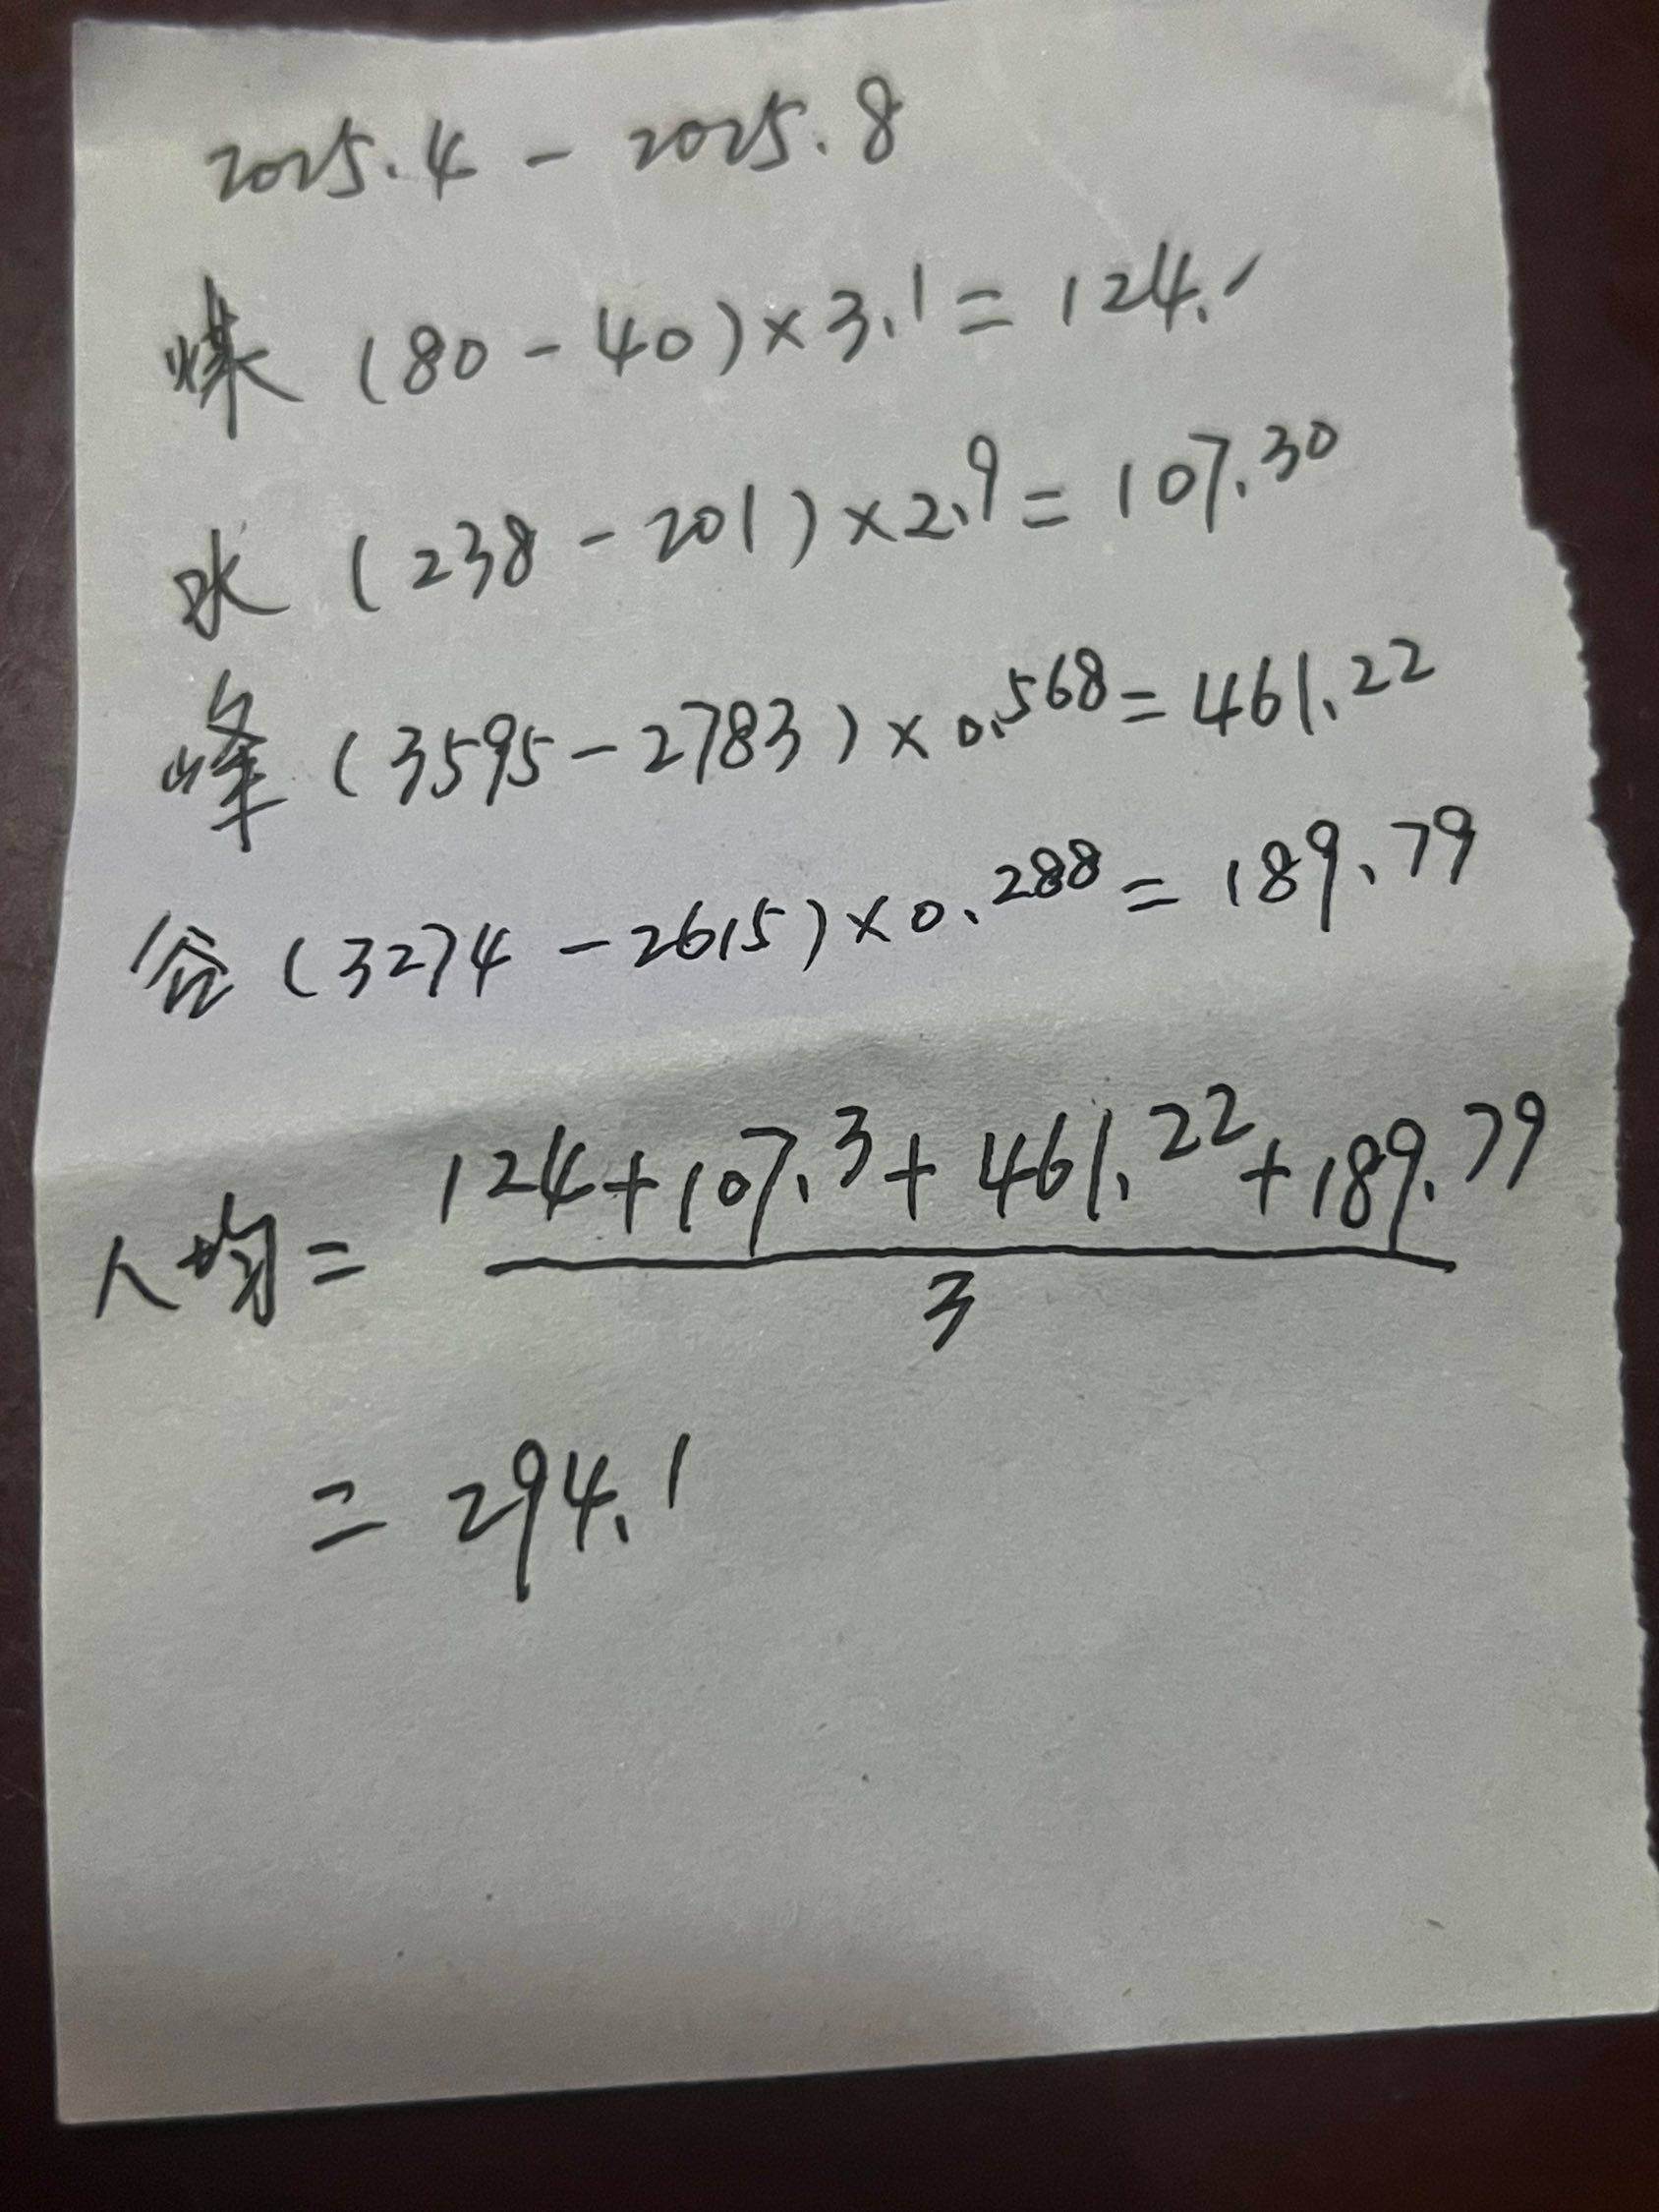 2025.4 - 2025.8
煤 (80-40)×3.1=124.
水 (238-201)×2.9=107.30
峰 (3595-2783)×0.568=461.22
谷 (3274-2615)×0.288=189.79
人均= 124+107.3+461.22+189.79
3
=294.1